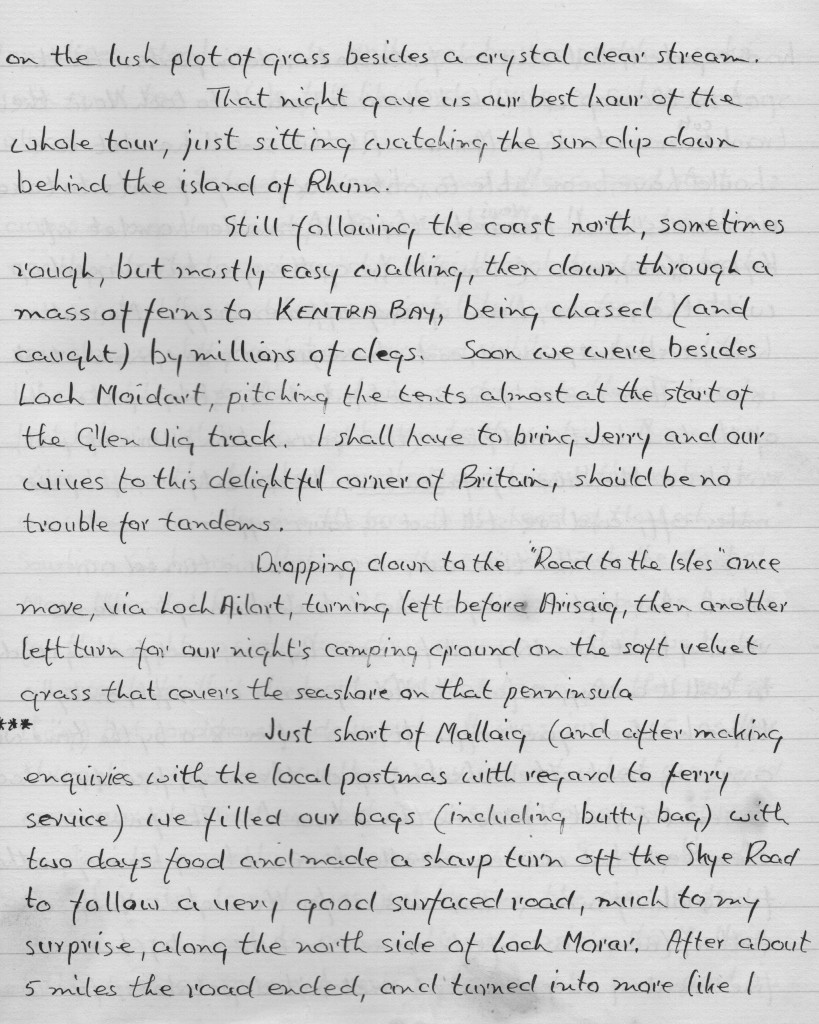 on the lush plot of grass besides a crystal clear stream.
That night gave us our best hour of the
whole tour, just sitting watching the sun dip down
behind the island of Rhum.
Still following the coast north, sometimes
rough, but mostly easy walking, then down through a
mass of ferns to KENTRA BAY, being chased (and
caught) by millions of clegs. Soon we were besides
Loch Moidart, pitching the tents almost at the start of
the Glen Uig track. I shall have to bring Jerry and our
wives to this delightful corner of Britain, should be no
trouble for tandems.
Dropping down to the "Road to the Isles" once
more, via Loch Ailort, turning left before Arisaig, then another
left turn for our night's camping ground on the soft velvet
grass that covers the seashore on that penninsula
***
Just short of Mallaig (and after making
enquiries with the local postmas with regard to ferry
service) we filled our bags (including butty bag) with
two days food and made a sharp turn off the Skye Road
to follow a very good surfaced road, much to my
surprise, along the north side of Loch Morar. After about
5 miles the road ended, and turned into more like I